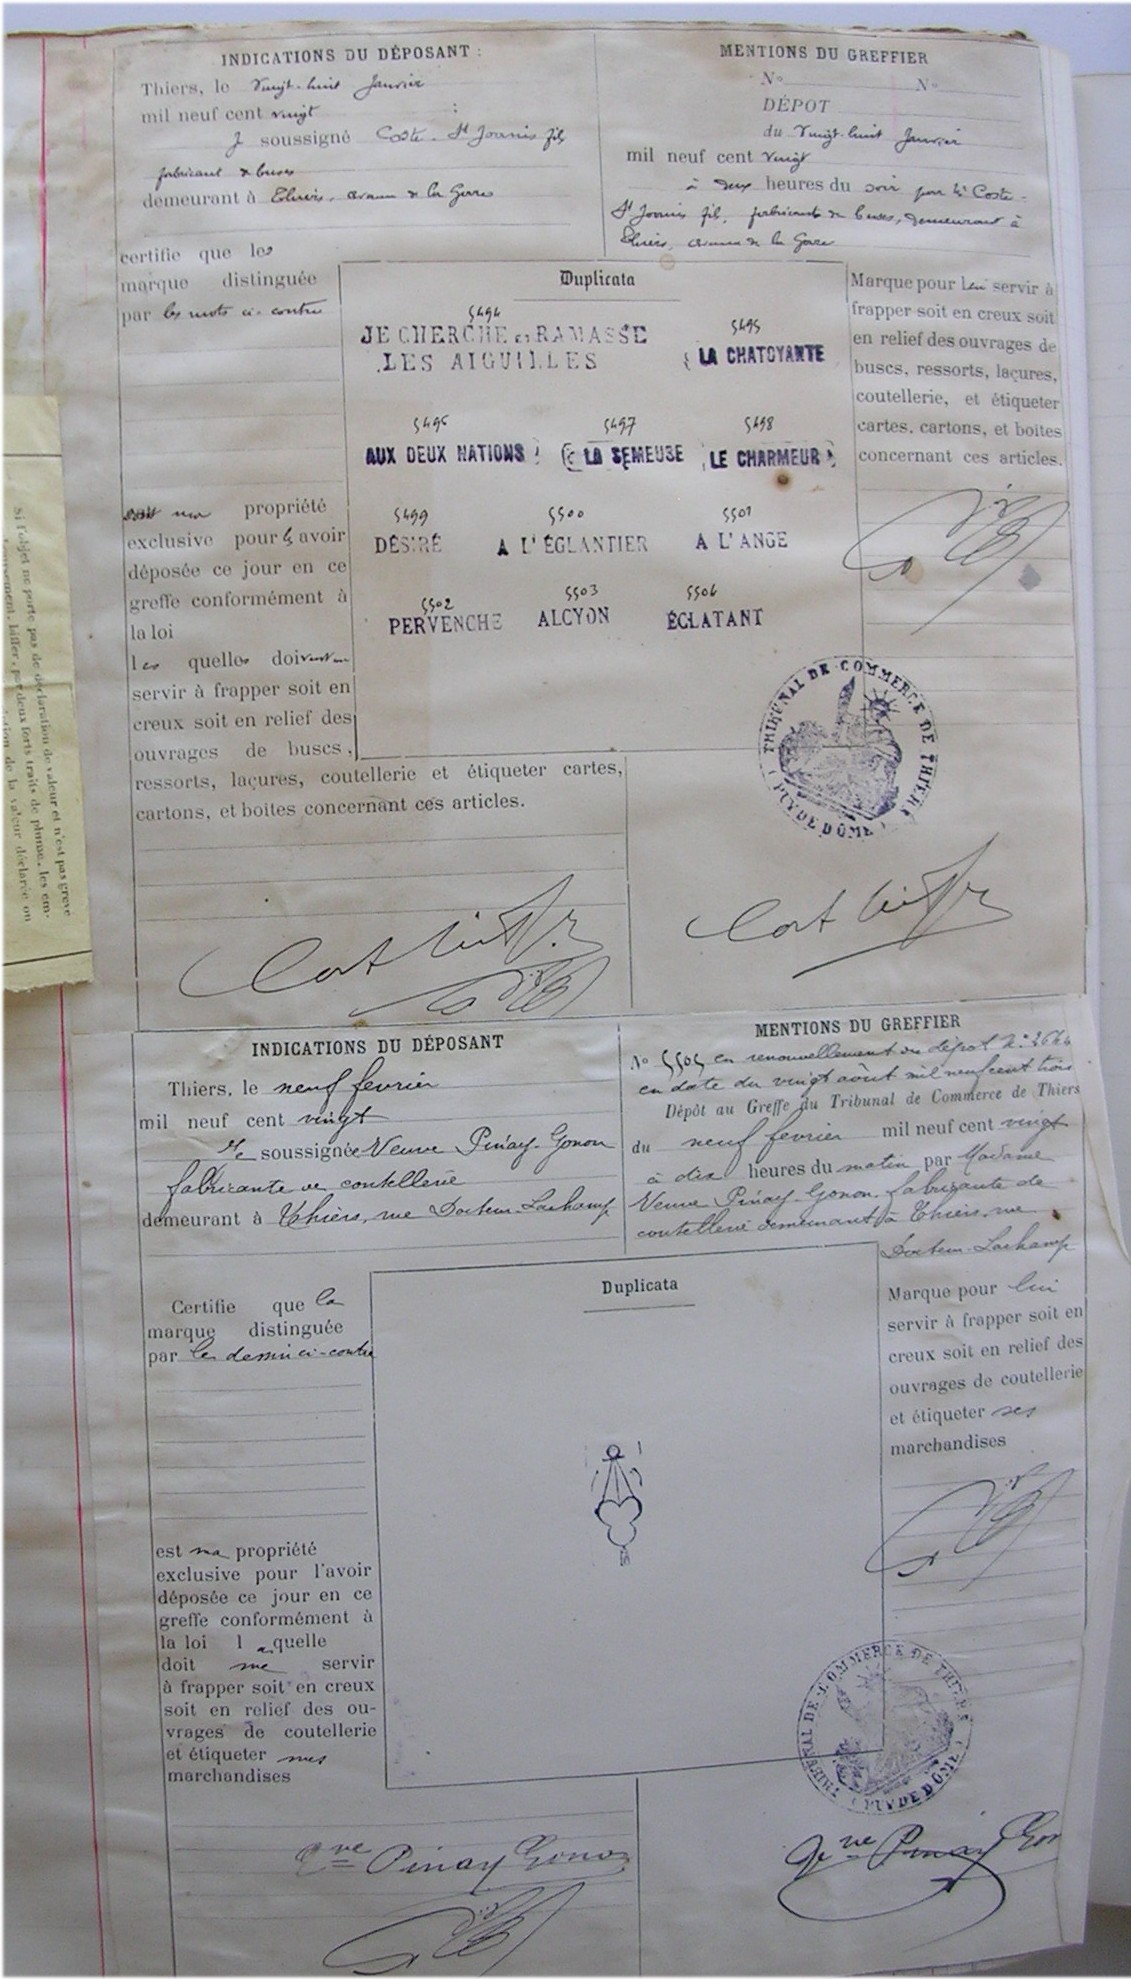 INDICATIONS DU DÉPOSANT :
Thiers, le vingt-huit Janvier
mil neuf cent vingt
Je soussigné Coste-St Joannis fils
fabricant de buscs
demeurant à Thiers, avenue de la Gare
certifie que les
marque distinguée
par les mots ci-contre
propriété
exclusive pour l'avoir
déposée ce jour en ce
greffe conformément à
la loi
les quelles doivent
servir à frapper soit en
creux soit en relief des
ouvrages de buscs,
ressorts, laçures, coutellerie et étiqueter cartes,
cartons, et boites concernant ces articles.
MENTIONS DU GREFFIER
No No
DÉPOT
du vingt-huit Janvier
mil neuf cent vingt
à deux heures du soir par Mr Coste-
St Joannis fils, fabricant de buscs, demeurant à
Thiers, avenue de la Gare
Duplicata
5494
JE CHERCHE ET RAMASSE
LES AIGUILLES
5495
LA CHATOYANTE
5496
AUX DEUX NATIONS
5497
LA SEMEUSE
5498
LE CHARMEUR
5499
DÉSIRÉ
5500
A L'ÉGLANTIER
5501
A L'ANGE
5502
PERVENCHE
5503
ALCYON
5504
ÉCLATANT
Marque pour lui servir à
frapper soit en creux soit
en relief des ouvrages de
buscs, ressorts, laçures,
coutellerie, et étiqueter
cartes, cartons, et boites
concernant ces articles.
TRIBUNAL DE COMMERCE DE THIERS
(PUY DE DÔME)
Si l'objet ne porte pas de déclaration de valeur et n'est pas grevé
biffer, par deux forts traits de plume, les em-
de la valeur déclarée ou
INDICATIONS DU DÉPOSANT
Thiers, le neuf fevrier
mil neuf cent vingt
Je soussignée Veuve Pinay-Gonon
fabricante de coutellerie
demeurant à Thiers, rue Docteur-Lachamp
Certifie que la
marque distinguée
par le dessin ci-contre
est ma propriété
exclusive pour l'avoir
déposée ce jour en ce
greffe conformément à
la loi laquelle
doit me servir
à frapper soit en creux
soit en relief des ou-
vrages de coutellerie
et étiqueter mes
marchandises
MENTIONS DU GREFFIER
No 5505 en renouvellement du dépot No 2644
en date du vingt août mil neuf cent trois
Dépôt au Greffe du Tribunal de Commerce de Thiers
du neuf fevrier mil neuf cent vingt
à dix heures du matin par Madame
Veuve Pinay-Gonon, fabricante de
coutellerie demeurant à Thiers, rue
Docteur-Lachamp
Duplicata
Marque pour lui
servir à frapper soit en
creux soit en relief des
ouvrages de coutellerie
et étiqueter ses
marchandises
TRIBUNAL DE COMMERCE DE THIERS
(PUY DE DÔME)
Vve Pinay Gonon
Vve Pinay Gon